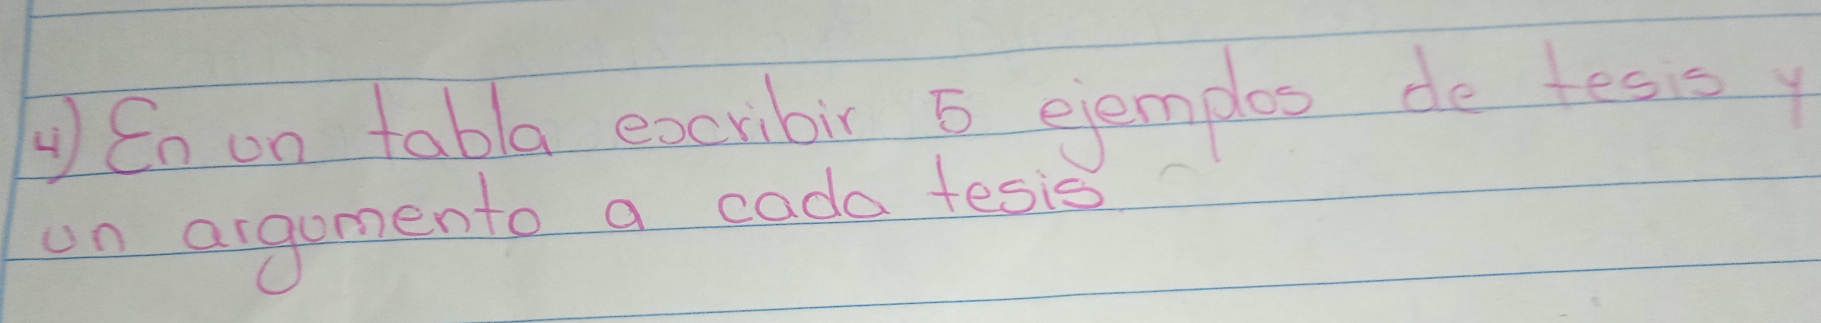 4) En un tabla escribir 5 ejemplos de tesis y
un argumento a cada tesis